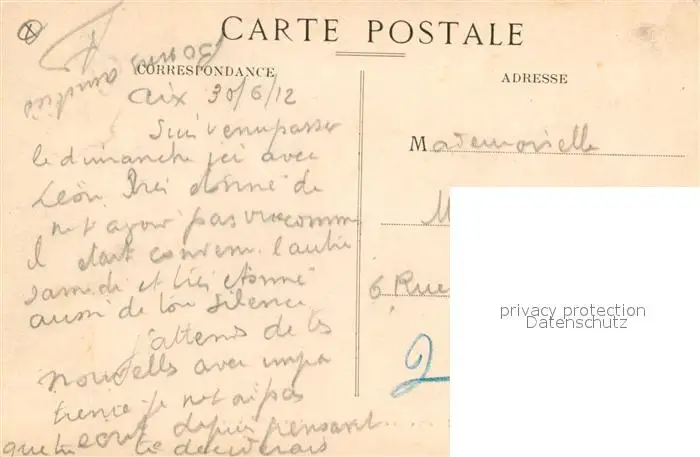 CARTE POSTALE
CORRESPONDANCE
ADRESSE
Bonnes amitiés
Aix 30/6/12
Suis venu passer
le dimanche ici avec
Léon. Très étonné de
ne t'avoir pas vue comme
il était convenu l'autre
samedi et très étonné
aussi de ton silence
J'attends de tes
nouvelles avec impa
tience je ne t'ai pas
écrit depuis pensant....
que tu te déciderais
Mademoiselle
M
6 Rue
2
privacy protection
Datenschutz